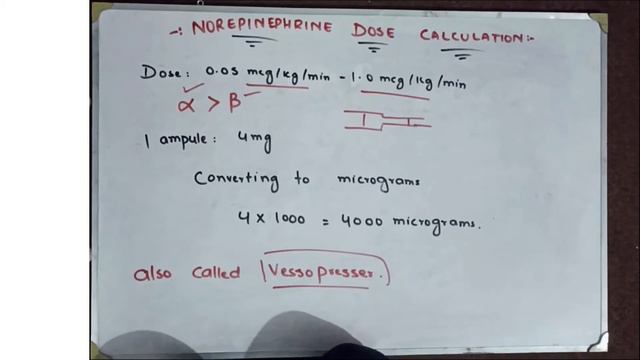 -: NOREPINEPHRINE DOSE CALCULATION:-
Dose: 0.05 mcg/kg/min - 1.0 mcg/kg/min
α > β
1 ampule: 4mg
Converting to micrograms
4 x 1000 = 4000 micrograms.
also called Vessopresser.